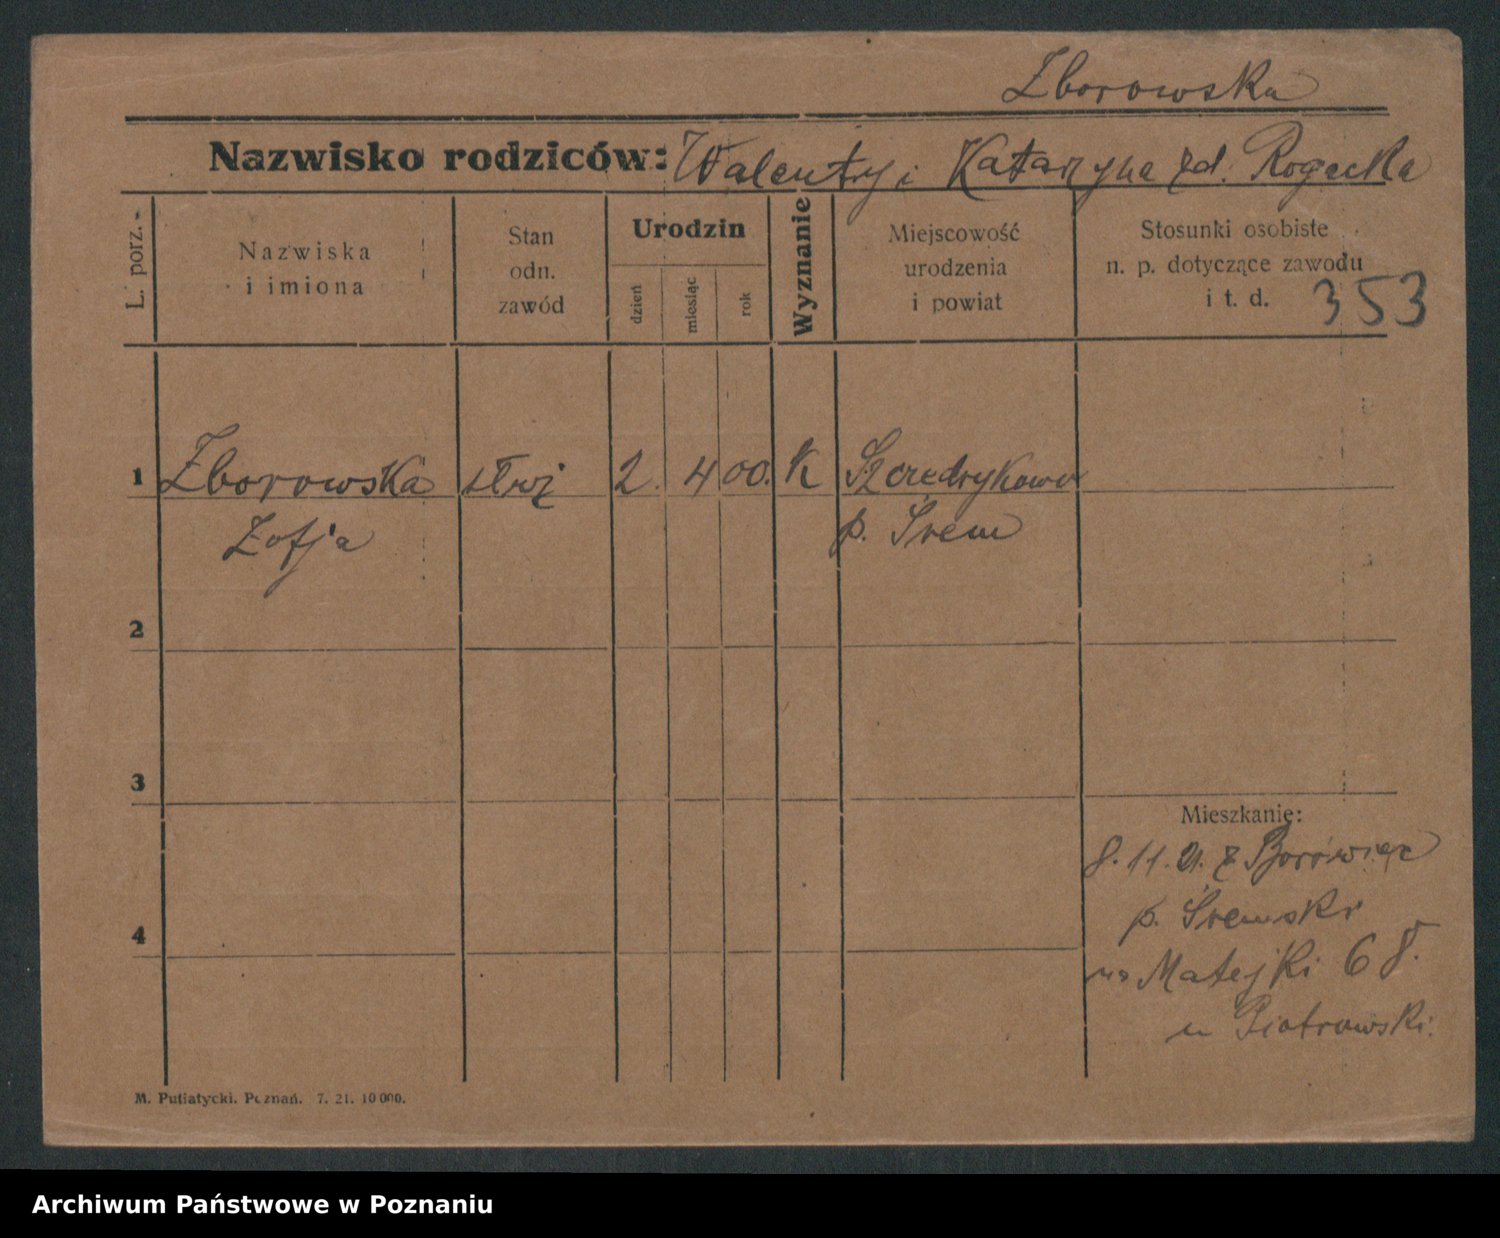 Zborowska
Nazwisko rodziców: Walenty i Katarzyna zd. Rogacka
L. porz.
Nazwiska
i imiona
Stan
odn.
zawód
Urodzin
dzień
miesiąc
rok
Wyznanie
Miejscowość
urodzenia
i powiat
Stosunki osobiste
n. p. dotyczące zawodu
i t. d.
353
1 Zborowska służ 2. 4 00. K
Zofja
p. Śrem
2
3
4
Mieszkanie:
8. 11. 21. z Borówiec
p. Śremski
na Matejki 68.
u Piotrowski.
M. Putiatycki. Poznań. 7. 21. 10 000.
Archiwum Państwowe w Poznaniu